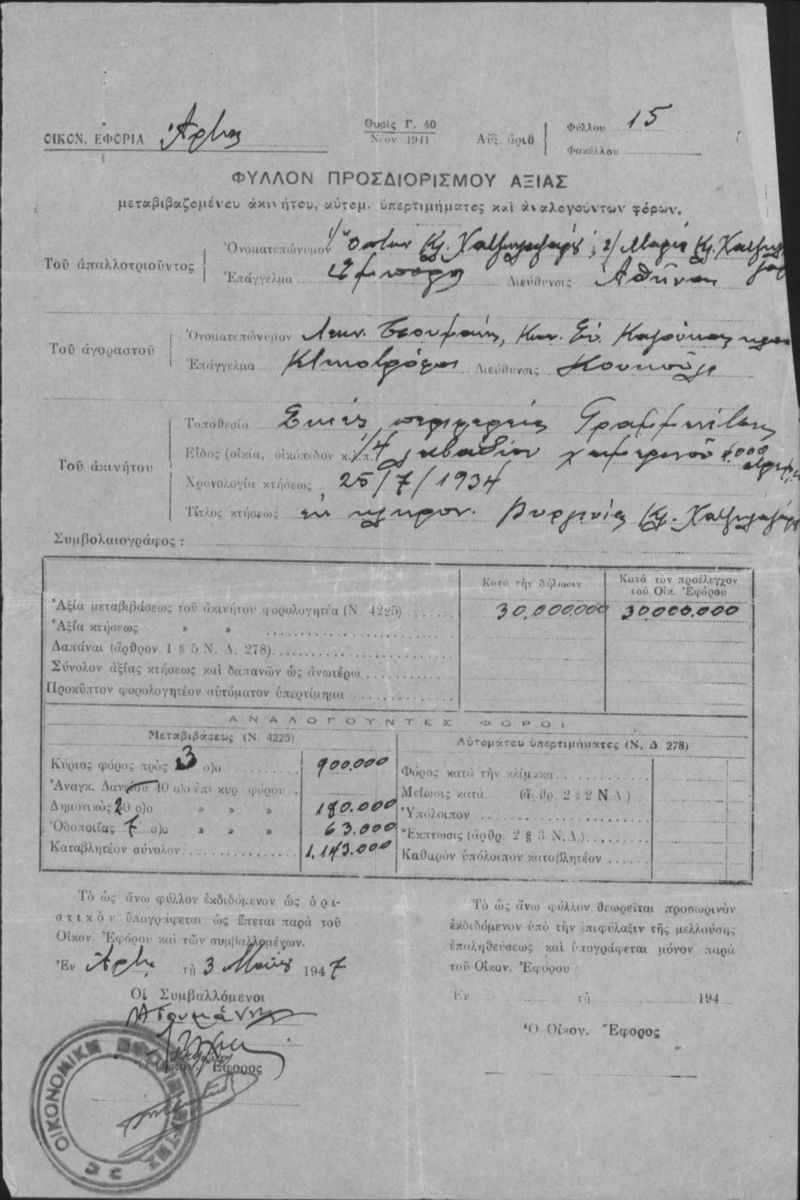 ΟΙΚΟΝ. ΕΦΟΡΙΑ Ἄρτης
Θυρὶς Γ. 40
Νέον 1941
Αὔξ. ἀριθ
Φύλλου 15
Φακέλλου
ΦΥΛΛΟΝ ΠΡΟΣΔΙΟΡΙΣΜΟΥ ΑΞΙΑΣ
μεταβιβαζομένου ἀκινήτου, αὐτομ. ὑπερτιμήματος καὶ ἀναλογούντων φόρων.
Τοῦ ἀπαλλοτριοῦντος
Ὀνοματεπώνυμον 1/ Κλ. 2/ Μαρία Κλ.
Ἐπάγγελμα Διεύθυνσις Ἀθῆναι
Τοῦ ἀγοραστοῦ
Ὀνοματεπώνυμον
Ἐπάγγελμα Κτηνοτρόφοι Διεύθυνσις
Τοῦ ἀκινήτου
Τοποθεσία περιφερείας Γραμμενίτσης
Εἶδος (οἰκία, οἰκόπεδον κ.λ.π.) 1/4 λιβαδίου χειμερινοῦ 4000
Χρονολογία κτήσεως 25/7/1934
Τίτλος κτήσεως ἐκ κληρον. Κλ.
Συμβολαιογράφος :
Κατὰ τὴν δήλωσιν
Κατὰ τὸν προέλεγχον τοῦ Οἰκ. Ἐφόρου
Ἀξία μεταβιβάσεως τοῦ ἀκινήτου φορολογητέα (Ν. 4225) 30.000.000 30.000.000
Ἀξία κτήσεως » »
Δαπάναι (ἄρθρον 1 § 5 Ν. Δ. 278)
Σύνολον ἀξίας κτήσεως καὶ δαπανῶν ὡς ἀνωτέρω
Προκῦπτον φορολογητέον αὐτόματον ὑπερτίμημα
ΑΝΑΛΟΓΟΥΝΤΕΣ ΦΟΡΟΙ
Μεταβιβάσεως (Ν. 4225)
Κύριος φόρος πρὸς 3 ο)ο 900.000
Ἀναγκ. Δανείου 10 ο)ο ἐπὶ κυρ φόρου
Δημοτικὸς 20 ο)ο » » » 180.000
Ὁδοποιΐας 7 ο)ο » » » 63.000
Καταβλητέον σύνολον 1.143.000
Αὐτομάτου ὑπερτιμήματος (Ν. Δ. 278)
Φόρος κατὰ τὴν κλίμακα
Μείωσις κατὰ (ἄρθρ. 2 § 2 Ν.Δ.)
Ὑπόλοιπον
Ἔκπτωσις (ἄρθρ. 2 § 3 Ν.Δ.)
Καθαρὸν ὑπόλοιπον καταβλητέον
Τὸ ὡς ἄνω φύλλον ἐκδιδόμενον ὡς ὁρι-
στικὸν ὑπογράφεται ὡς ἕπεται παρὰ τοῦ
Οἰκον. Ἐφόρου καὶ τῶν συμβαλλομένων.
Ἐν Ἄρτῃ τῇ 3 Μαΐου 1947
Οἱ Συμβαλλόμενοι
Ὁ Οἰκον. Ἔφορος
Τὸ ὡς ἄνω φύλλον θεωρεῖται προσωρινὸν
ἐκδιδόμενον ὑπὸ τὴν ἐπιφύλαξιν τῆς μελλούσης
ἐπαληθεύσεως καὶ ὑπογράφεται μόνον παρὰ
τοῦ Οἰκον. Ἐφόρου
Ἐν τῇ 194
Ὁ Οἰκον. Ἔφορος
ΟΙΚΟΝΟΜΙΚΗ ΕΦΟΡΙΑ ΑΡΤΗΣ